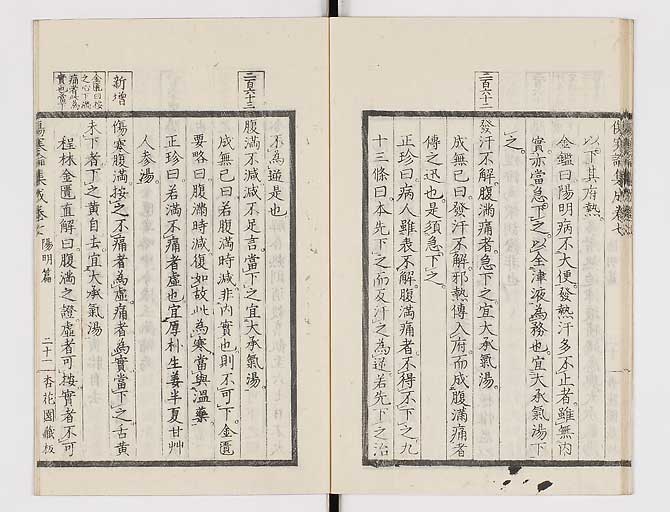 傷寒論集成卷七
以下其府熱
金鑑曰陽明病不大便發熱汗多不止者雖無內
實亦當急下之以全津液為務也宜大承氣湯下
之
二百六十二
發汗不解腹滿痛者急下之宜大承氣湯
成無已曰發汗不解邪熱傳入府而成腹滿痛者
傳之迅也是須急下之
正珍曰病人雖表不解腹滿痛者不得不下之九
十三條曰本先下之而反汗之為逆若先下之治
不為逆是也
二百六十三
腹滿不減減不足言當下之宜大承氣湯
成無已曰若腹滿時減非內實也則不可下金匱
要略曰腹滿時減復如故此為寒當與溫藥
正珍曰若滿不痛者虛也宜厚朴生姜半夏甘艸
人參湯
新增
傷寒腹滿按之不痛者為虛痛者為實當下之舌黃
金匱曰按
之心下滿
痛者此為
實也當下
未下者下之黃自去宜大承氣湯
程林金匱直解曰腹滿之證虛者可按實者不可
傷寒論集成卷七 陽明篇 二十一 杏花園藏板